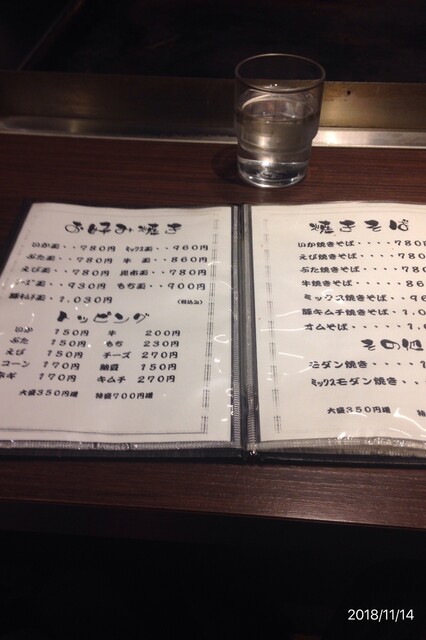 お好み焼き
いか玉・・780円 ミックス玉・・960円
ぶた玉・・780円 牛 玉・・860円
えび玉・・780円 昆布玉・・780円
玉・・930円 もち玉・・900円
玉・1,030円 (税込み)
トッピング
いか 150円 牛 200円
ぶた 150円 もち 230円
えび 150円 チーズ 270円
コーン 170円 納豆 150円
ネギ 170円 キムチ 270円
大盛350円増 特盛700円増
焼きそば
いか焼きそば・・・・・780
えび焼きそば・・・・・780
ぶた焼きそば・・・・・780
牛焼きそば・・・・・・86
ミックス焼きそば・・96
豚キムチ焼きそば・1,0
オムそば・・・・・・1,0
その他
モダン焼き・・・・
ミックスモダン焼き・・
大盛350円増
2018/11/14